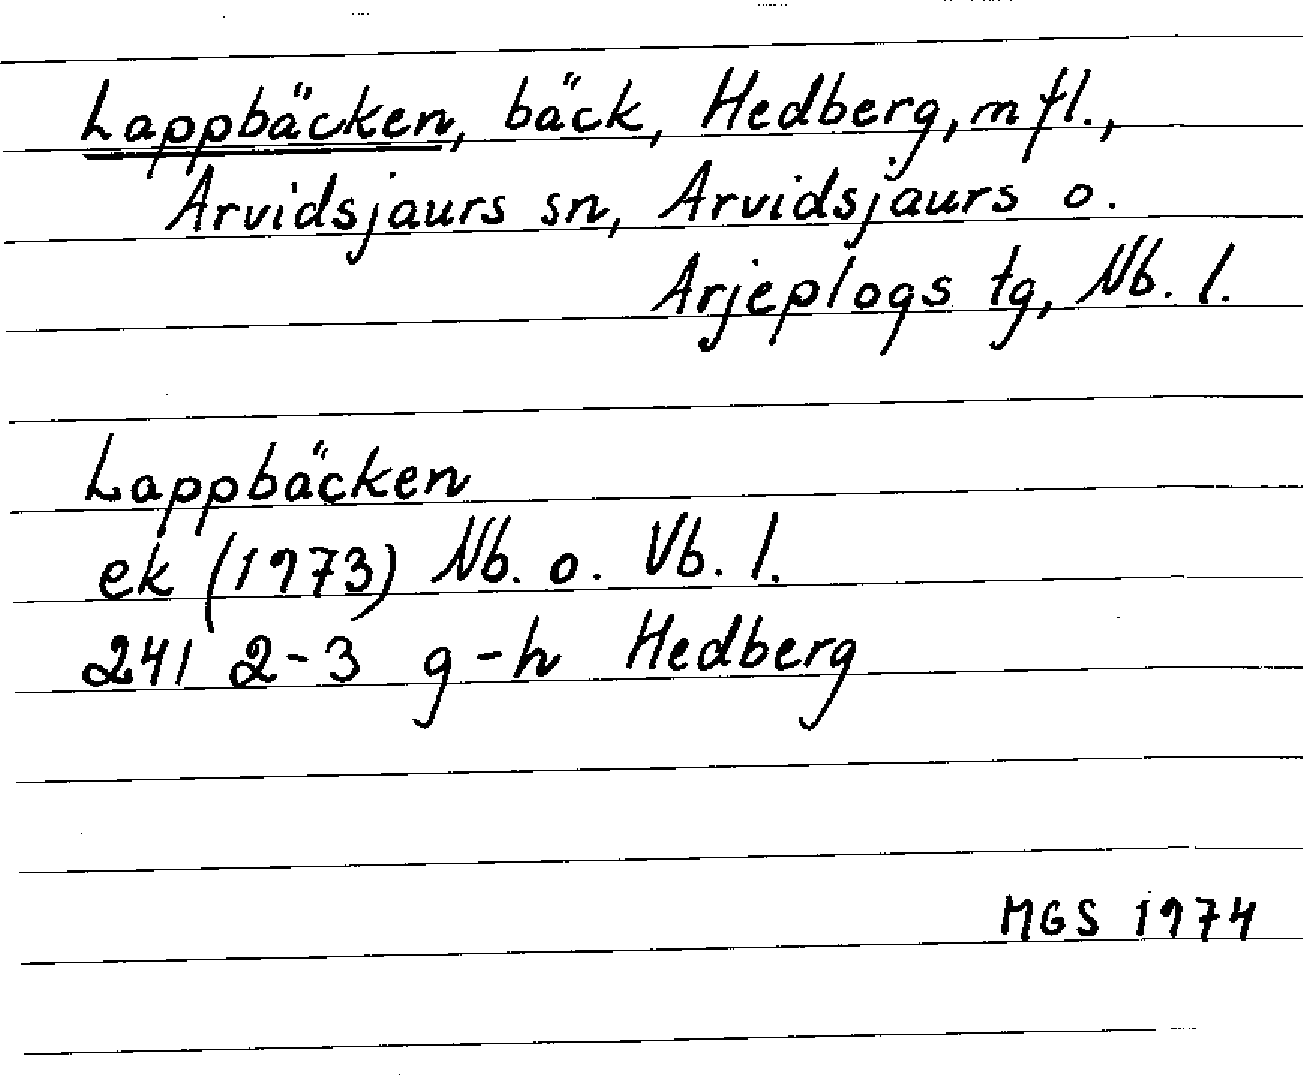 Lappbäcken, bäck, Hedberg, m fl.,
Arvidsjaurs sn, Arvidsjaurs o.
Arjeplogs tg, Nb. l.
Lappbäcken
ek (1973) Nb. o. Vb. l.
241 2-3 g-h Hedberg
MGS 1974